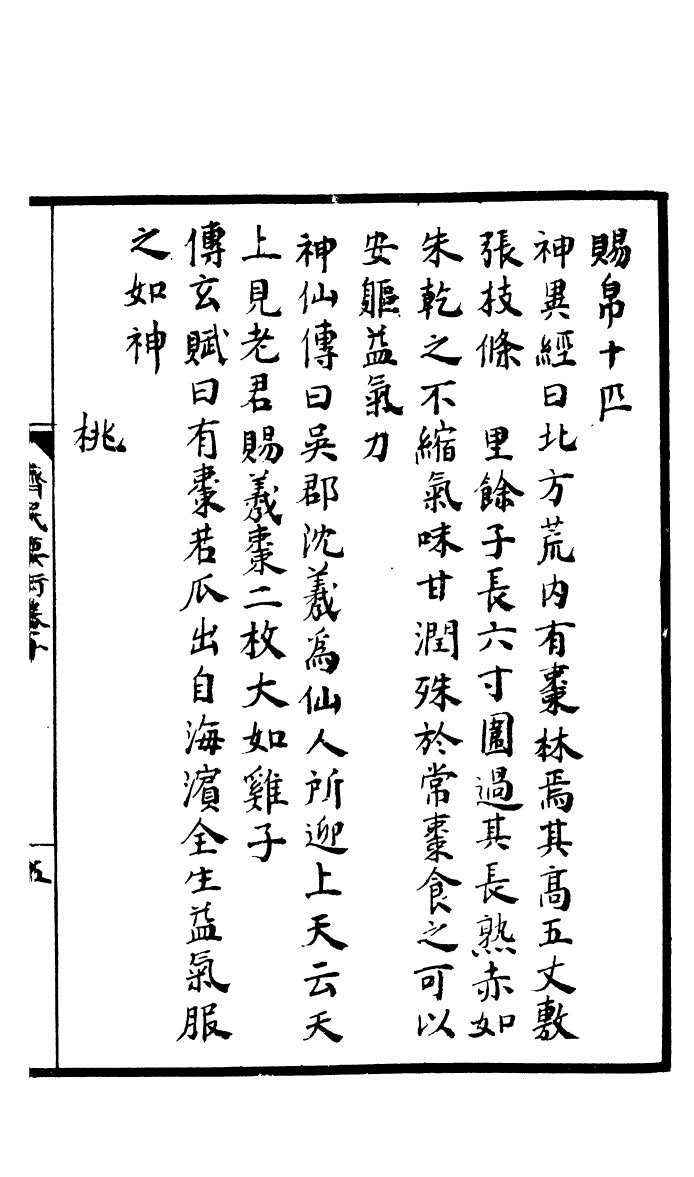 賜帛十匹
神異經曰北方荒内有棗林焉其髙五丈敷
張枝條　里餘子長六寸圍過其長熟赤如
朱乾之不縮氣味甘潤殊於常棗食之可以
安軀益氣力
神仙傳曰吳郡沈羲爲仙人所迎上天云天
上見老君賜羲棗二枚大如雞子
傳玄賦曰有棗若瓜出自海濵全生益氣服
之如神
桃
齊民要術卷十
五